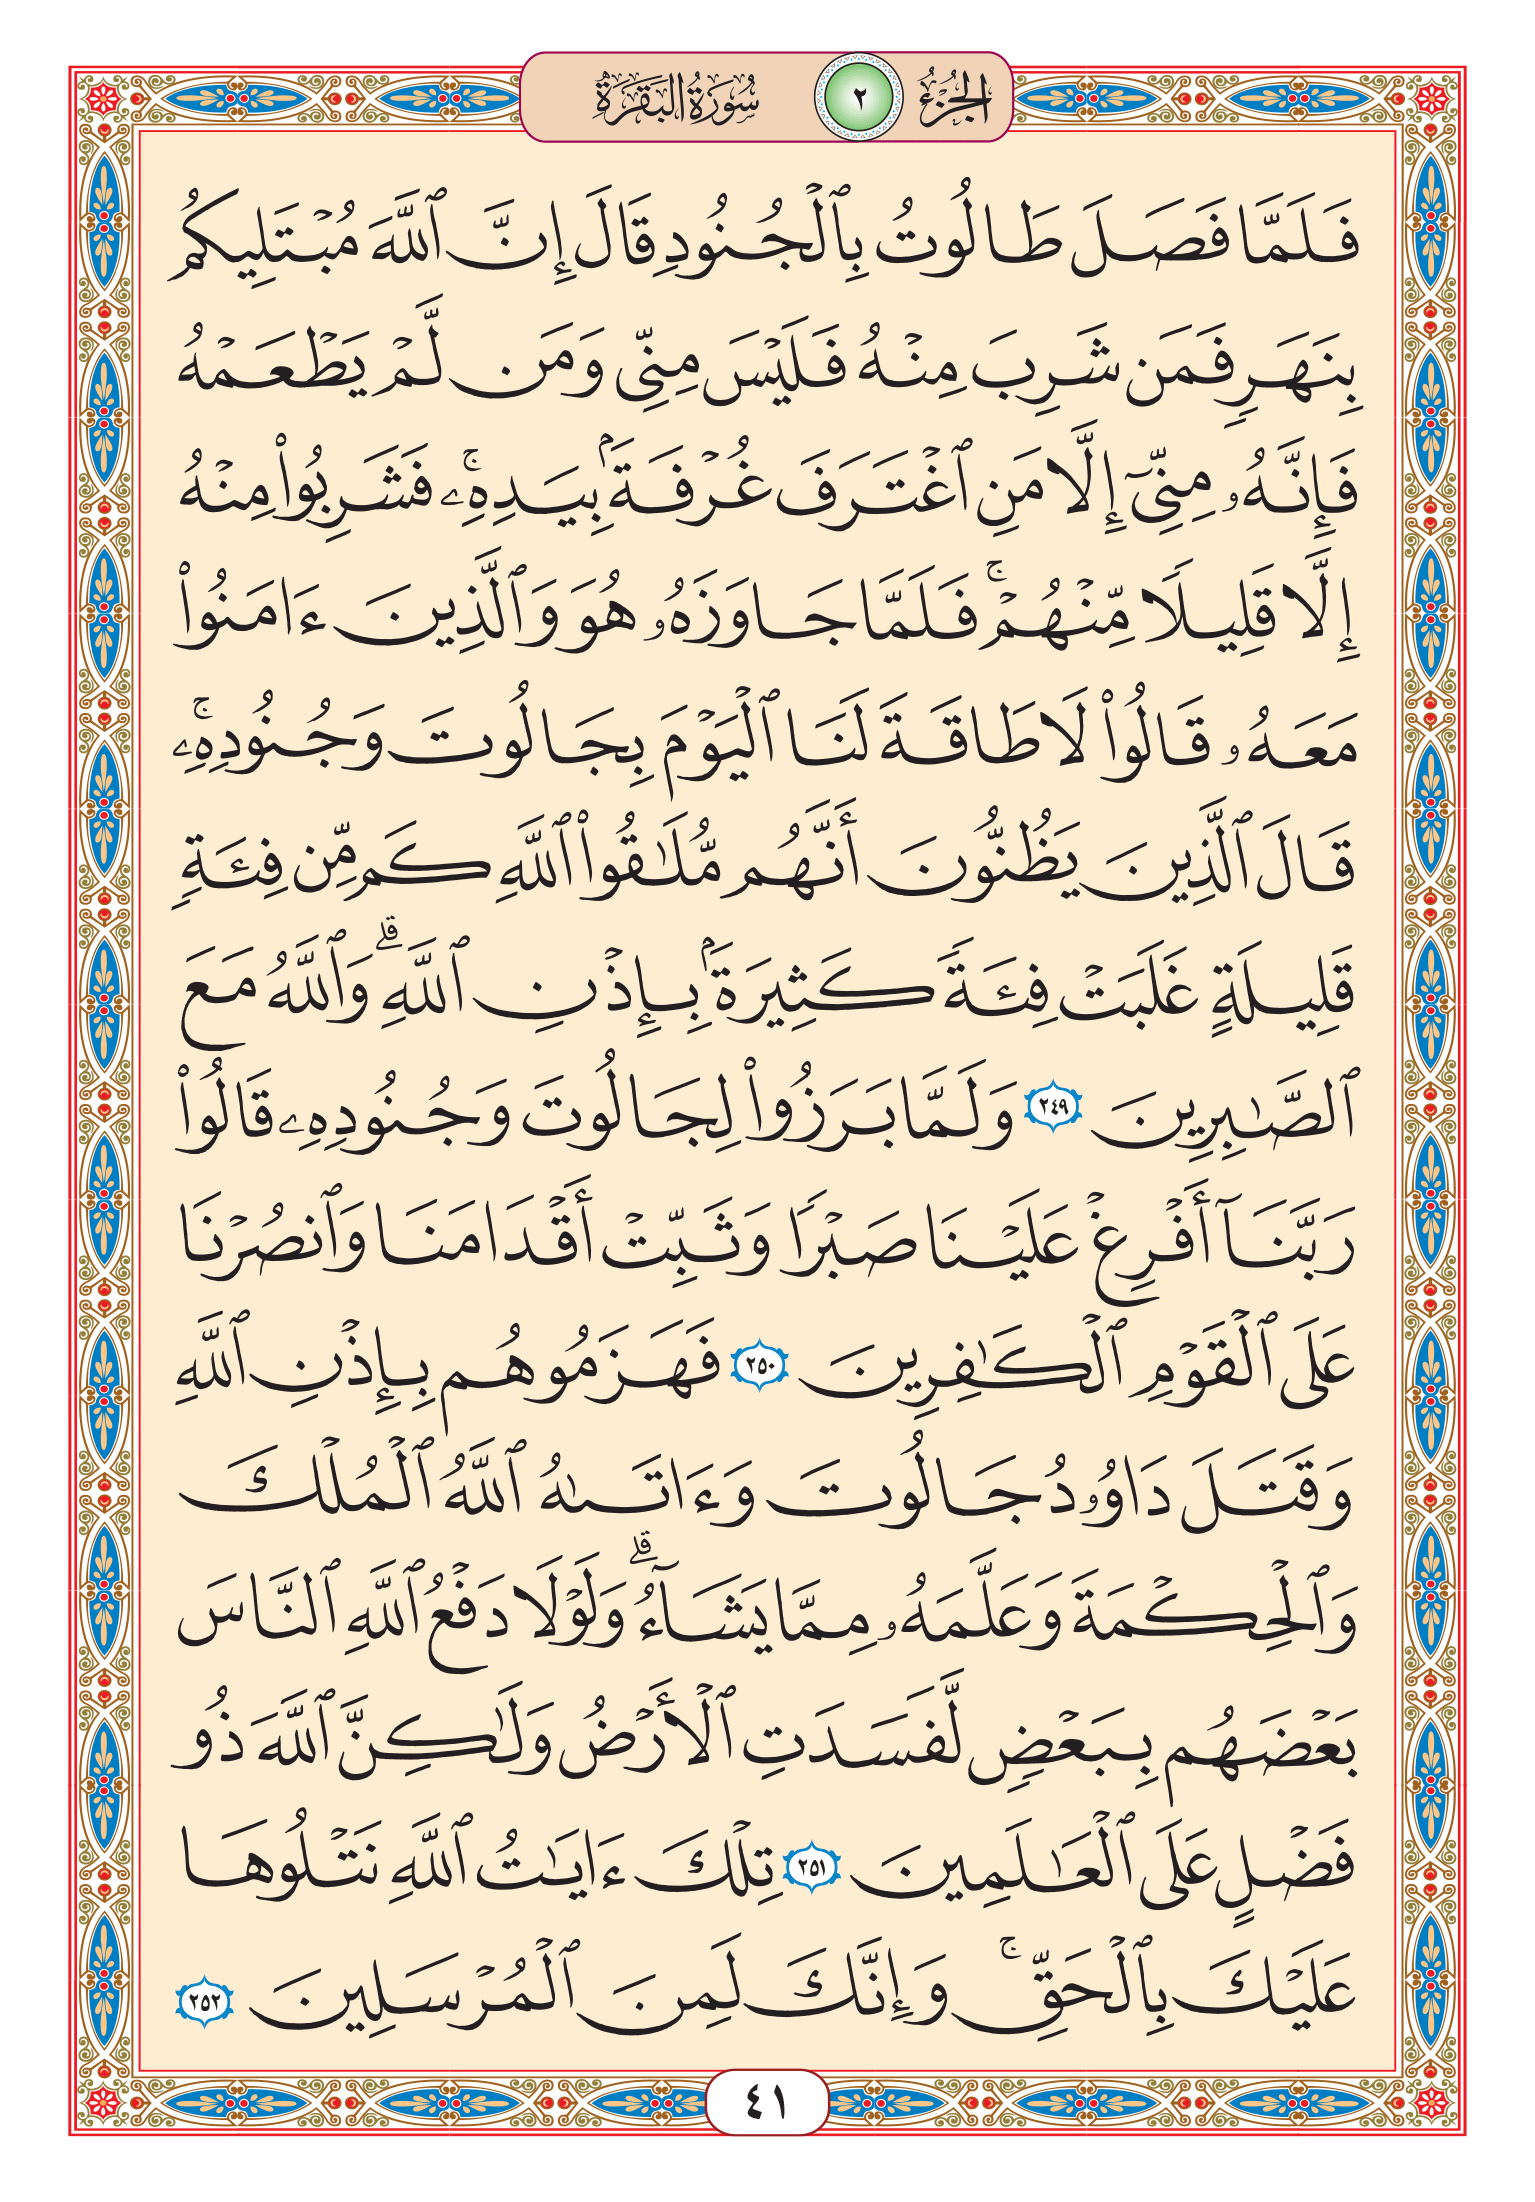 الجُزْءُ ٢ سُورَةُ البَقَرَةِ
فَلَمَّا فَصَلَ طَالُوتُ بِٱلْجُنُودِ قَالَ إِنَّ ٱللَّهَ مُبْتَلِيكُم
بِنَهَرٍ فَمَن شَرِبَ مِنْهُ فَلَيْسَ مِنِّى وَمَن لَّمْ يَطْعَمْهُ
فَإِنَّهُۥ مِنِّىٓ إِلَّا مَنِ ٱغْتَرَفَ غُرْفَةَۢ بِيَدِهِۦۚ فَشَرِبُوا۟ مِنْهُ
إِلَّا قَلِيلًا مِّنْهُمْۚ فَلَمَّا جَاوَزَهُۥ هُوَ وَٱلَّذِينَ ءَامَنُوا۟
مَعَهُۥ قَالُوا۟ لَا طَاقَةَ لَنَا ٱلْيَوْمَ بِجَالُوتَ وَجُنُودِهِۦۚ
قَالَ ٱلَّذِينَ يَظُنُّونَ أَنَّهُم مُّلَٰقُوا۟ ٱللَّهِ كَم مِّن فِئَةٍ
قَلِيلَةٍ غَلَبَتْ فِئَةً كَثِيرَةَۢ بِإِذْنِ ٱللَّهِۗ وَٱللَّهُ مَعَ
ٱلصَّٰبِرِينَ ٢٤٩ وَلَمَّا بَرَزُوا۟ لِجَالُوتَ وَجُنُودِهِۦ قَالُوا۟
رَبَّنَآ أَفْرِغْ عَلَيْنَا صَبْرًا وَثَبِّتْ أَقْدَامَنَا وَٱنصُرْنَا
عَلَى ٱلْقَوْمِ ٱلْكَٰفِرِينَ ٢٥٠ فَهَزَمُوهُم بِإِذْنِ ٱللَّهِ
وَقَتَلَ دَاوُۥدُ جَالُوتَ وَءَاتَىٰهُ ٱللَّهُ ٱلْمُلْكَ
وَٱلْحِكْمَةَ وَعَلَّمَهُۥ مِمَّا يَشَآءُۗ وَلَوْلَا دَفْعُ ٱللَّهِ ٱلنَّاسَ
بَعْضَهُم بِبَعْضٍ لَّفَسَدَتِ ٱلْأَرْضُ وَلَٰكِنَّ ٱللَّهَ ذُو
فَضْلٍ عَلَى ٱلْعَٰلَمِينَ ٢٥١ تِلْكَ ءَايَٰتُ ٱللَّهِ نَتْلُوهَا
عَلَيْكَ بِٱلْحَقِّۚ وَإِنَّكَ لَمِنَ ٱلْمُرْسَلِينَ ٢٥٢
٤١